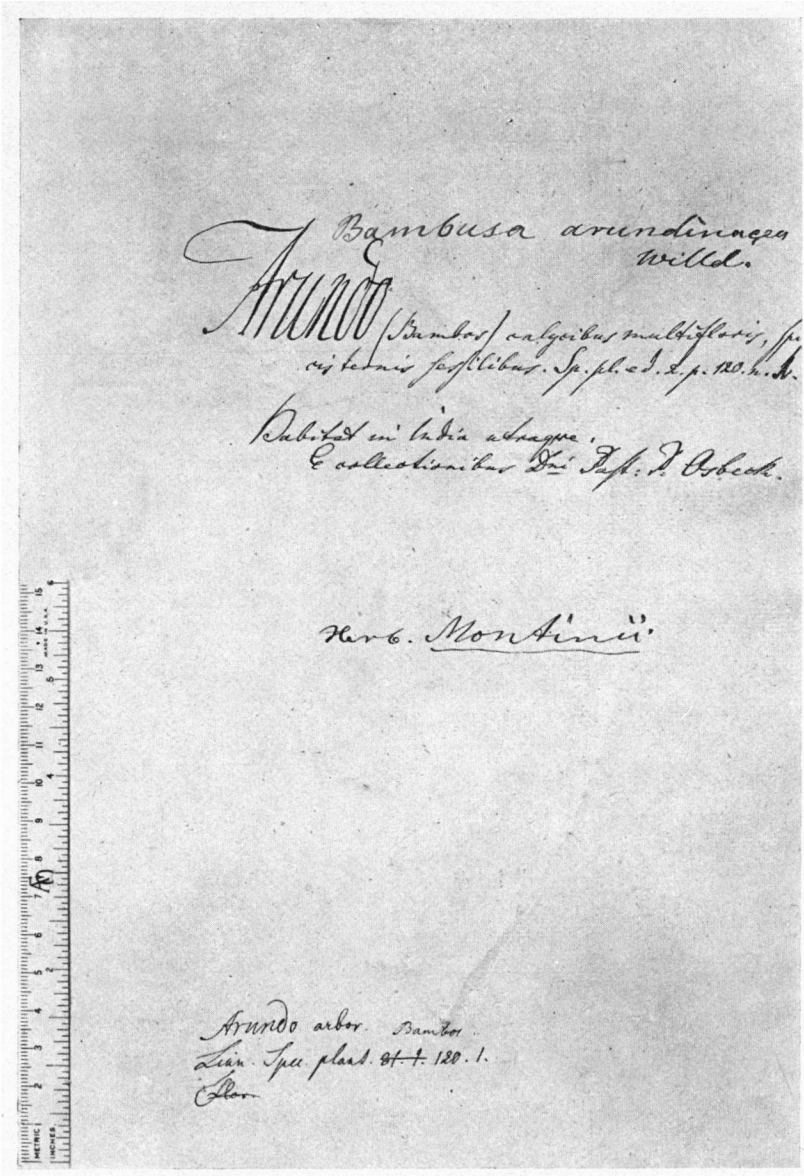 Bambusa arundinacea
Willd.
Arundo (Bambos) calycibus multifloris, spi
cis ternis sessilibus. Sp. pl. ed. 2. p. 120. n.
Habitat in India utraque.
E collectionibus Dni Past: P. Osbeck.
Herb. Montinii.
Arundo arbor. Bambos.
Linn. Spec. plant. 81. 1. 120. 1.
Flor.
METRIC 2 3 4 5 6 7 8 9 10 11 12 13 14 15
MADE IN U.S.A.
INCHES 2 4 5 6